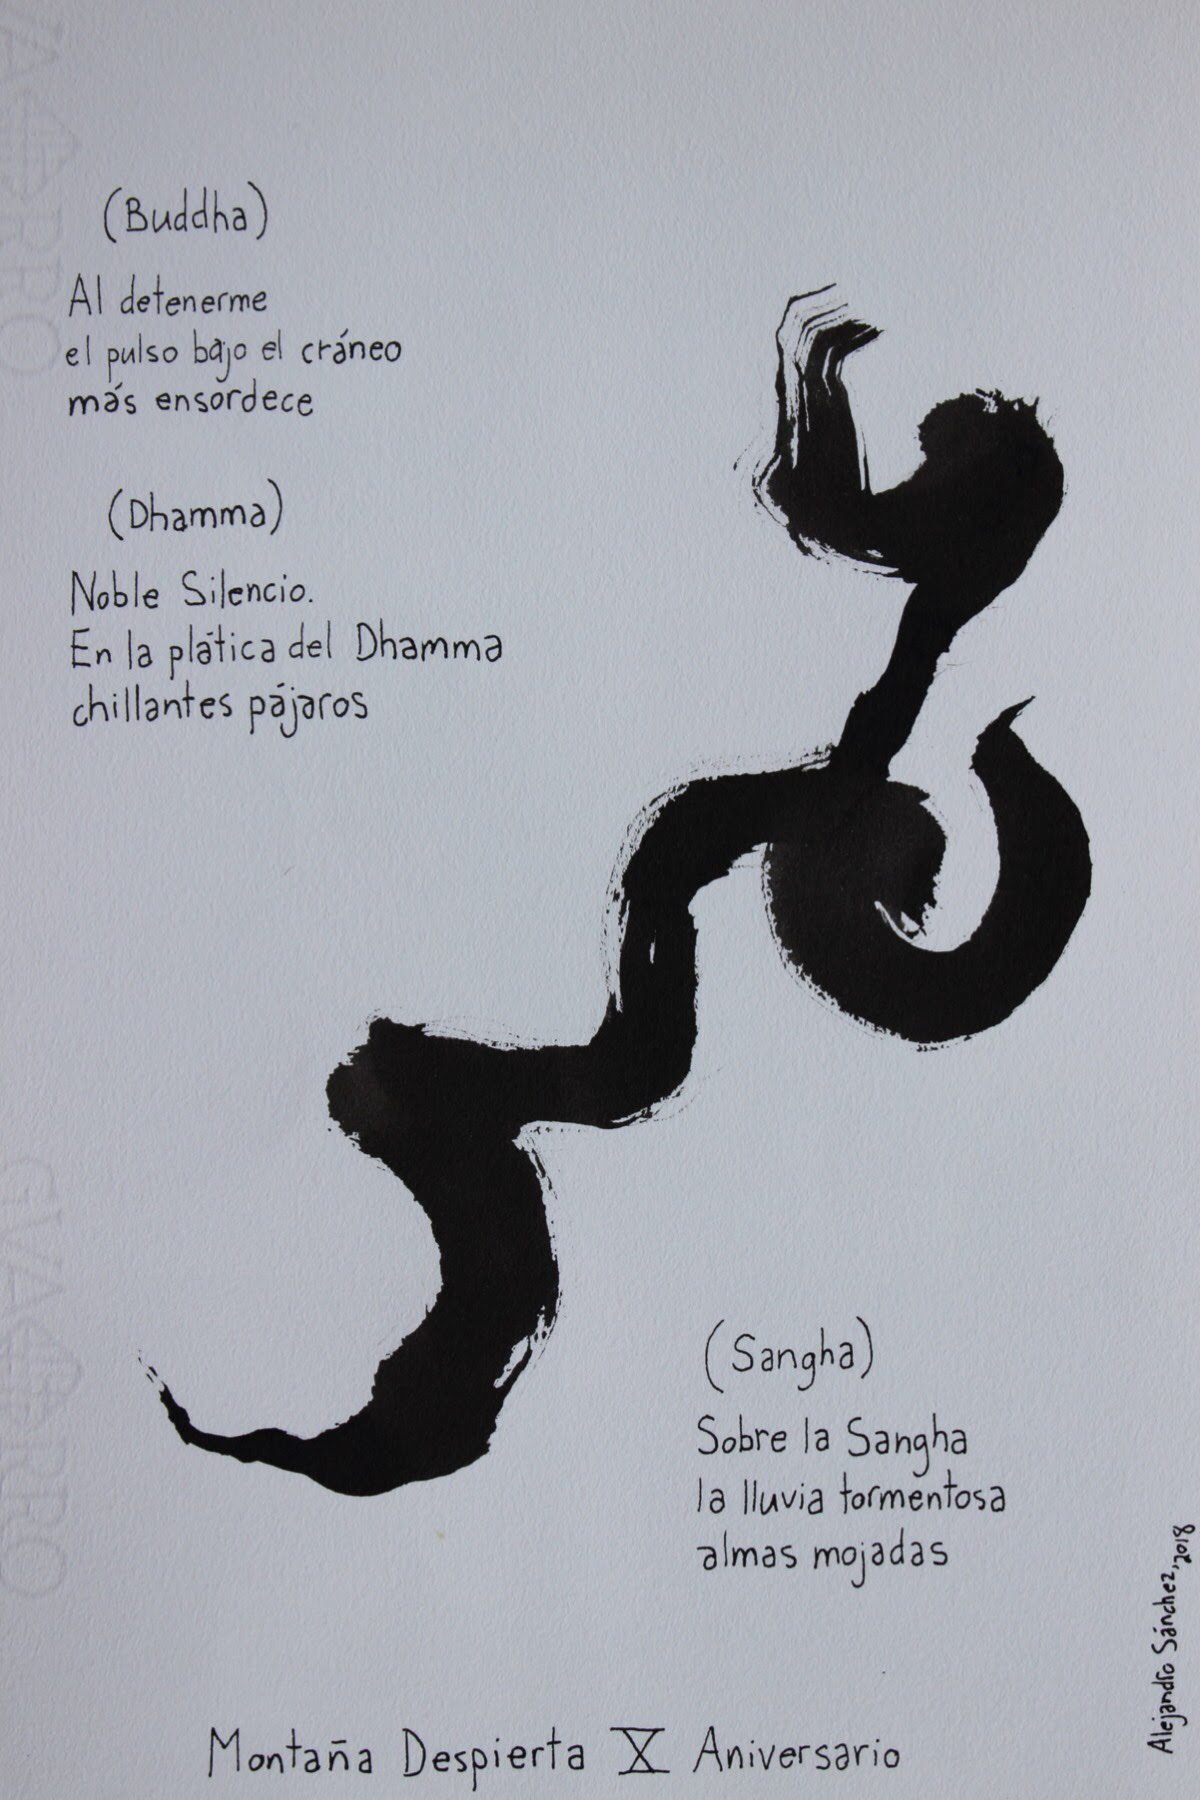 (Buddha)
Al detenerme
el pulso bajo el cráneo
más ensordece
(Dhamma)
Noble Silencio.
En la plática del Dhamma
chillantes pájaros
(Sangha)
Sobre la Sangha
la lluvia tormentosa
almas mojadas
Montaña Despierta X Aniversario
Alejandro Sánchez, 2018
GVARRO